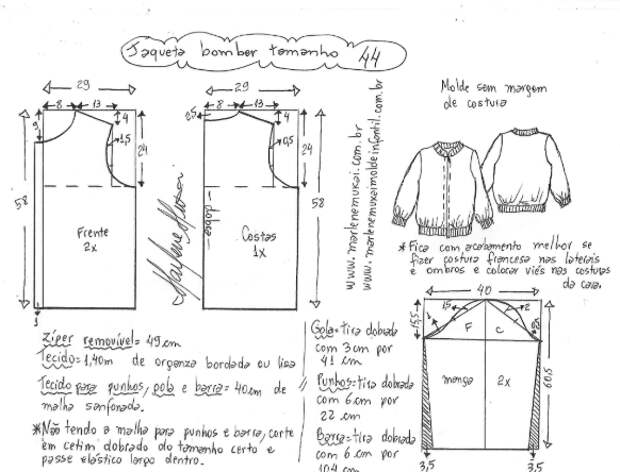 Jaqueta bomber tamanho 44
29
8 13
9
4
1,5
24
58
Frente
2x
1
29
8 13
2,5
4
0,5
24
58
dobra
Costas
1x
Marlene Mukai
www.marlenemukai.com.br
www.marlenemukaimoldeinfantil.com.br
Molde sem margem
de costura
*Fica com acabamento melhor se
fizer costura francesa nas laterais
e ombros e colocar viés nas costuras
da cava.
40
15,5
1,5
2
1
F C
manga 2x
60,5
3,5 3,5
Zíper removível= 49cm
Tecido= 1,40m de organza bordada ou lisa
Tecido para punhos, gola e barra= 40cm de
malha sanfonada.
*Não tendo a malha para punhos e barra, corte
em cetim dobrado do tamanho certo e
passe elástico largo dentro.
Gola= tira dobrada
com 3cm por
41 cm
Punhos= tira dobrada
com 6cm por
22 cm
Barra= tira dobrada
com 6 cm por
104 cm